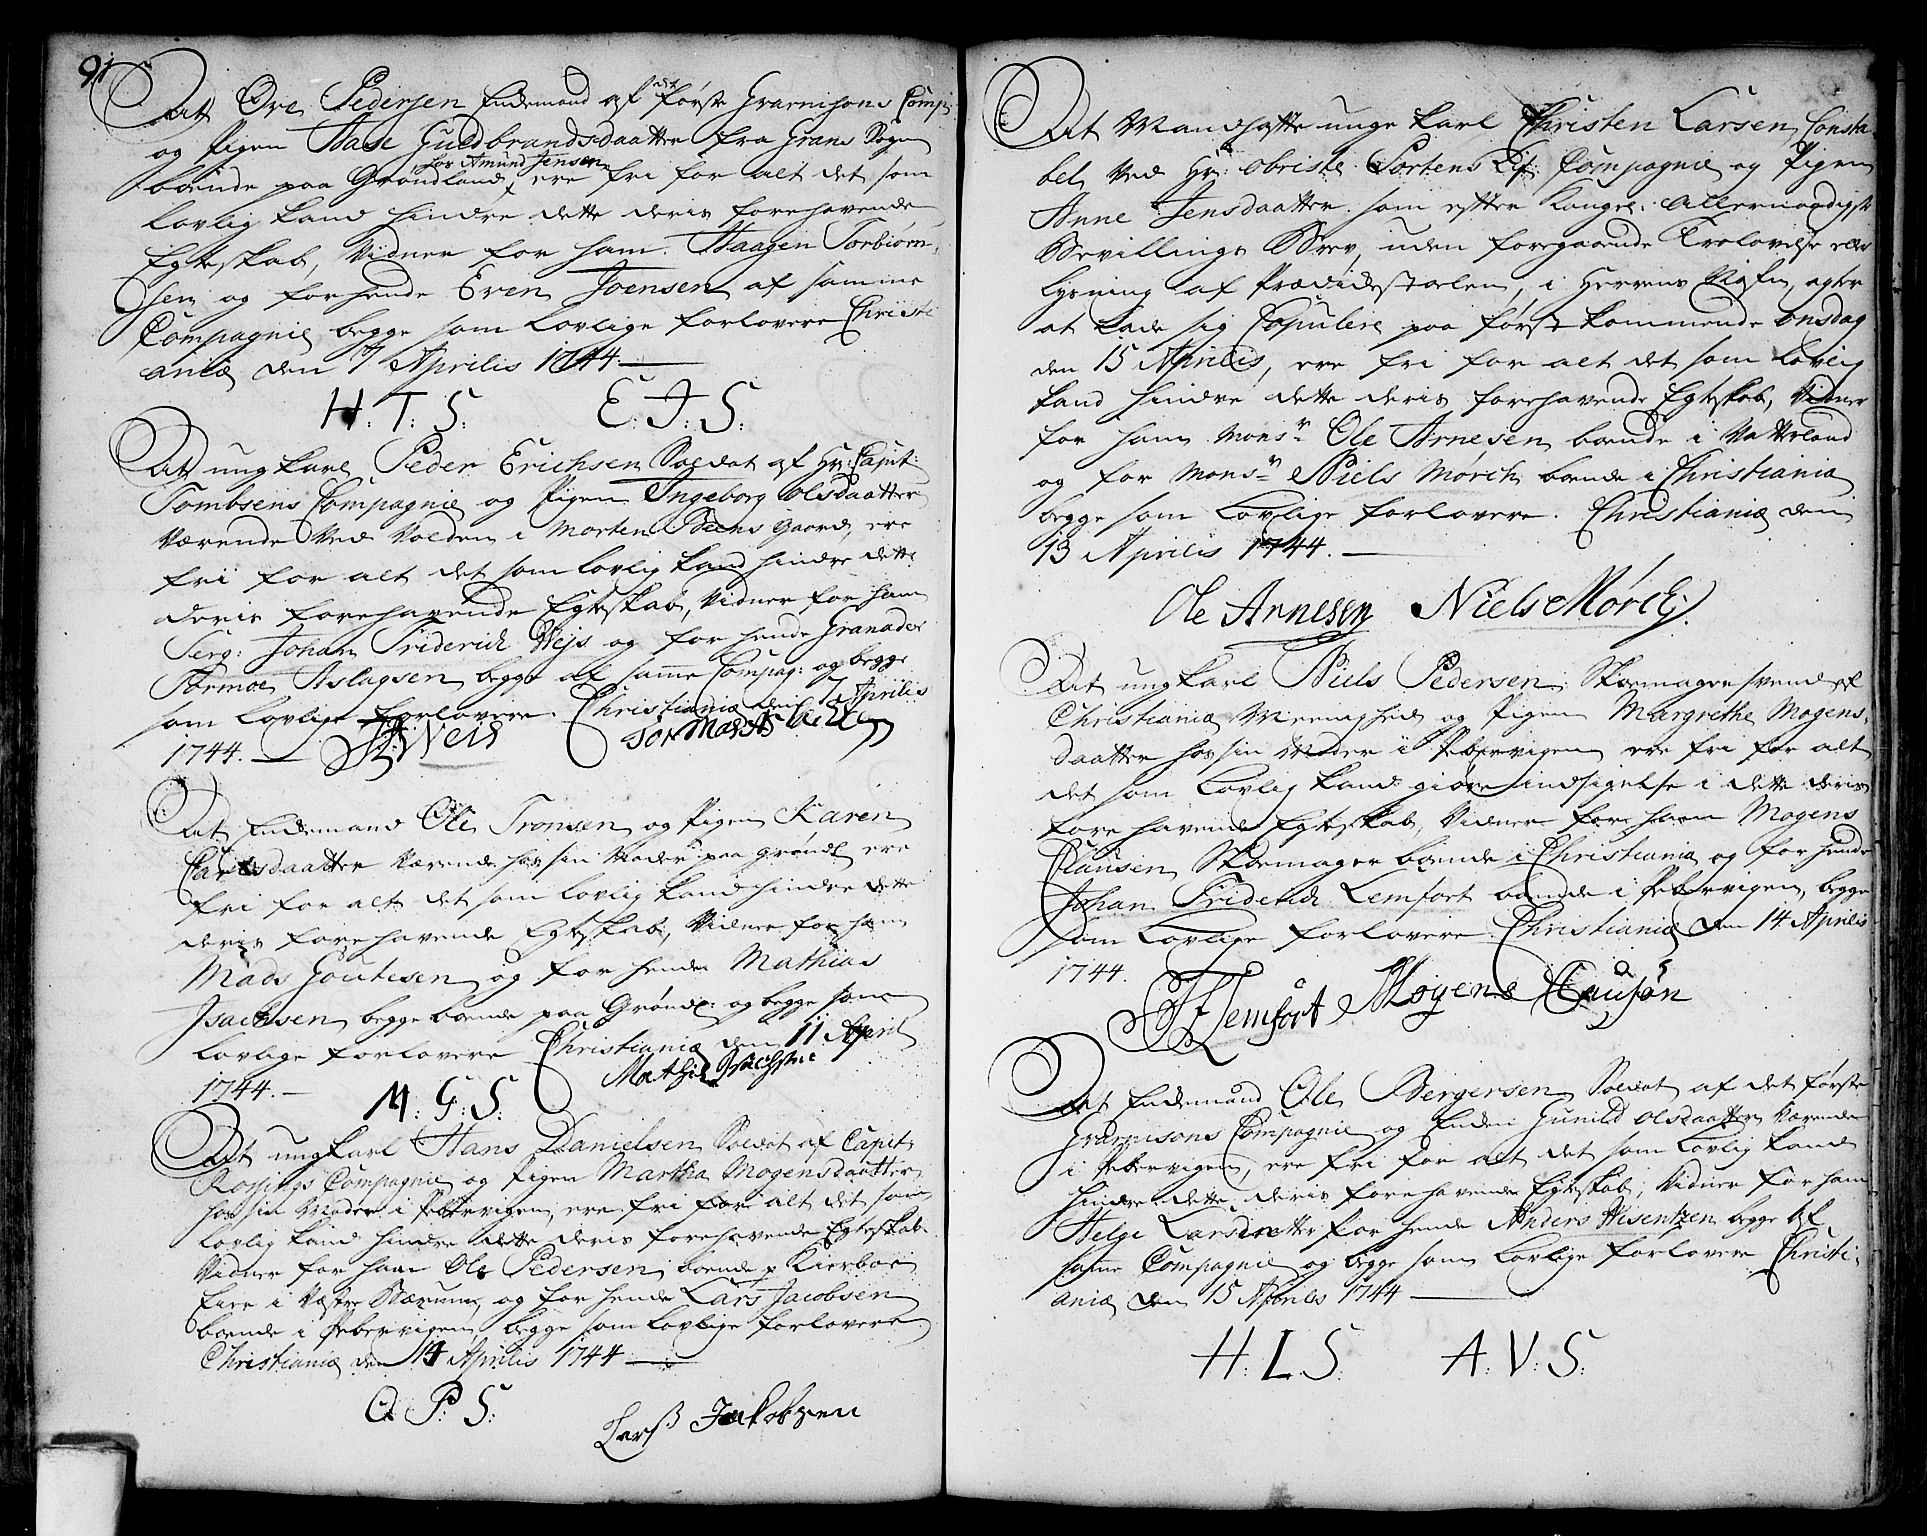 91
At Ove Pedersen Enkemand af det første Guarnisons Comp:
og Pigen Aase Guldbrandsdaatter fra Grans Sogn
boende paa Grøndland hos Amund Jensen, ere fri for alt det som
lovlig kand hindre dette deris forehavende
Egteskab, Vidner for ham Haagen Torbiørn-
sen og for hende Even Joensen af samme
Compagnie begge som lovlige forlovere Christi
ania den 7 Aprilis 1744
H. T. S. E. J. S.
At ungkarl Peder Erichsen Soldat af Hr: Capit:
Tombsens Compagnie og Pigen Ingeborg Olsdaatter
værende ved Volden i Morten Beens Gaard, ere
fri for alt det som lovlig kand hindre dette
deris forehavende Egteskab, Vidner for ham
Serg: Johan Friderich Weis og for hende Granader
Tormoe Aslagsen begge af samme Compag: og begge
som lovlige forlovere. Christiania den 7 Aprilis
1744. Weis
At Enkemand Ole Tronsen og Pigen Karen
Carlsdaatter værende hos sin Moder paa Grøndl: ere
fri for alt det som lovlig kand hindre dette
deris forehavende Egteskab, Vidner for ham
Mads Goutesen og for hende Mathias
Isachsen begge boende paa Grøndl: og begge som
lovlige forlovere Christiania den 11 April
1744. M. G. S. Mathis Isachsen
At ungkarl Hans Danielsen Soldat af Capit:
Rossings Compagnie og Pigen Martha Mogensdaatter
hos sin Moder i Pebervigen, ere fri for alt det som
lovlig kand hindre dette deris forehavende Egteskab
Vidner for ham Ole Pedersen boende p Kierboe
Eire i Vestre Bærum, og for hende Lars Jacobsen
boende i Pebervigen, begge som lovlige forlovere
Christiania den 14 Aprilis 1744
O. P. S. Larss Jackobsen
At Mandhafte unge karl Christen Larsen Consta-
bel ved Hr: Obriste Cortens Lif Compagnie og Pigen
Anne Jensdaatter som efter Kongel: allernaadigste
Bevillings Brev, uden foregaaende Trolovelse eller
Lysning af Prædickestoelen, i Herrens Nafn, agter
at lade sig Copulere paa førstkommende onsdag
den 15 Aprilis, ere fri for alt det som lovlig
kand hindre dette deris forehavende Egteskab, Vidner
for ham Monsr Ole Arnesen boende i Vatterland
og for Monsr Niels Mørch boende i Christiania
begge som lovlige forlovere. Christiania den
13 Aprilis 1744.
Ole Arnesen Niels Mørch.
At ungkarl Niels Pedersen Skoemager svend af
Christiania Meenighed og Pigen Margrethe Mogens-
daatter hos sin Moder i Pebervigen ere fri for alt
det som lovlig kand giøre indsigelse i dette deris
forehavende Egteskab, Vidner for ham Mogens
Clausen Skoemager boende i Christiania og for hende
Johan Friderich Lemfort boende i Pebervigen begge
som lovlige forlovere Christiania den 14 Aprilis
1744. Lemfort Mogens Clausøn
At Enkemand Ole Bergersen Soldat af det første
Guarnisons Compagnie og Enken Gunild Olsdaatter værende
i Pebervigen, ere fri for alt det som lovlig kand
hindre dette deris forehavende Egteskab, Vidner for ham
Helge Larsen for hende Anders Visentzen begge af
samme Compagnie og begge som lovlige forlovere Christi-
ania den 15 Aprilis 1744
H: L S. A: V: S: